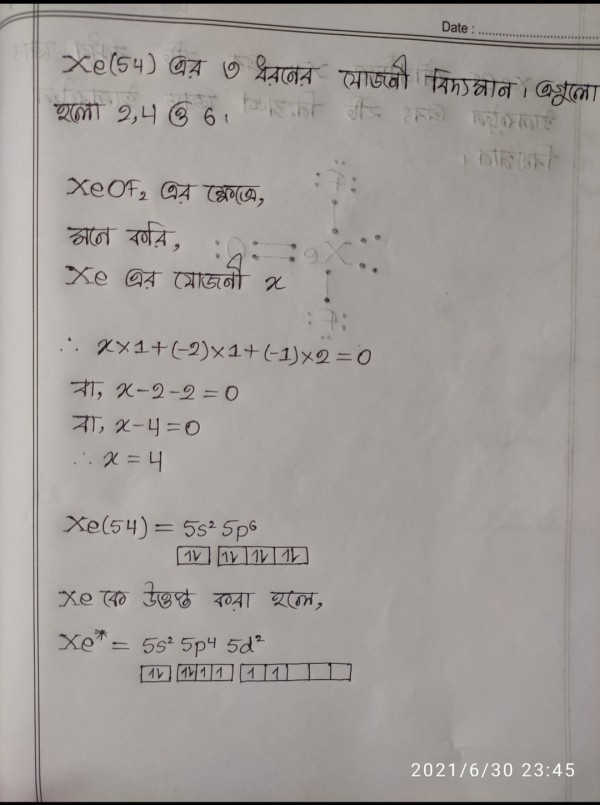 Date : ..........
Xe(54) এর ৩ ধরনের যোজনী বিদ্যমান। এগুলো
হলো 2,4 ও 6।
XeOF₂ এর ক্ষেত্রে,
মনে করি,
Xe এর যোজনী x
∴ x×1+(-2)×1+(-1)×2=0
বা, x-2-2=0
বা, x-4=0
∴ x=4
Xe(54) = 5s² 5p⁶
⥮ ⥮ ⥮ ⥮
Xe কে উত্তপ্ত করা হলে,
Xe* = 5s² 5p⁴ 5d²
⥮ ⥮ 1 1 1 1
2021/6/30 23:45